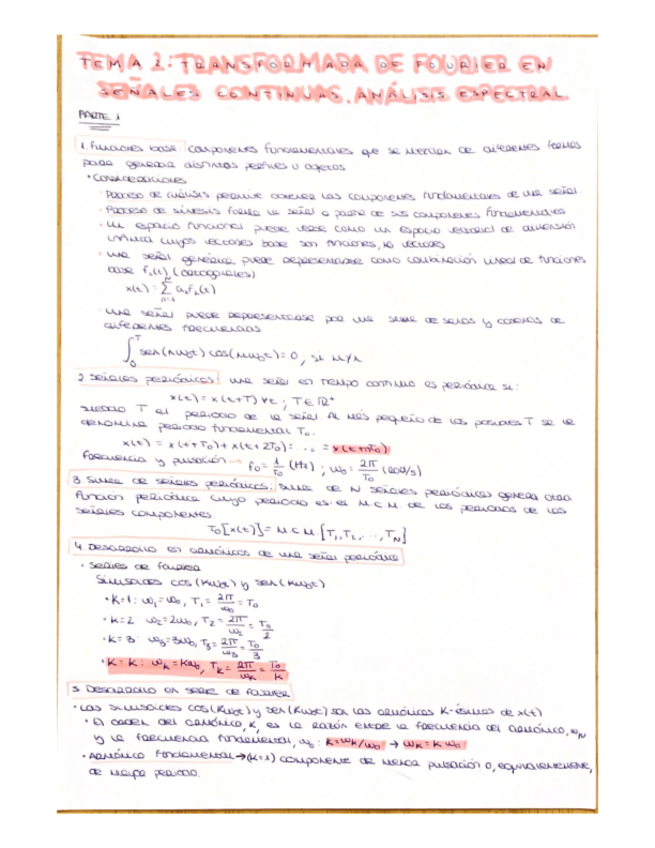 TEMA 2: TRANSFORMADA DE FOURIER EN
SEÑALES CONTINUAS. ANÁLISIS ESPECTRAL
PARTE 1
1. Funciones base: componentes fundamentales que se mezclan de diferentes formas
para generar distintos perfiles u objetos
• Consideraciones
· Proceso de análisis permite obtener las componentes fundamentales de una señal.
· Proceso de síntesis forma la señal a partir de sus componentes fundamentales
· Un espacio funcional puede verse como un espacio vectorial de dimensión
infinita cuyos vectores base son funciones, no vectores
· Una señal genérica puede representarse como combinación lineal de funciones
base fₖ(t) (ortogonales)
x(t) = Σ aₖfₖ(t)
· Una señal puede representarse por una suma de senos y cosenos de
diferentes frecuencias
∫₀ᵀ sen(nω₀t) cos(mω₀t) = 0 ; si
2. Señales periódicas: una señal en tiempo continuo es periódica si:
x(t) = x(t+T) ∀t ; T∈ℝ⁺
siendo T el periodo de la señal. Al más pequeño de los posibles T se le
denomina periodo fundamental T₀.
x(t) = x(t+T₀) = x(t+2T₀) = ... = x(t+nT₀)
Frecuencia y pulsación → f₀ = 1/T₀ (Hz) ; ω₀ = 2π/T₀ (rad/s)
3. Suma de señales periódicas: suma de N señales periódicas genera otra
función periódica cuyo periodo es el m.c.m. de los periodos de las
señales componentes.
T₀[x(t)] = m.c.m. [T₁, T₂, ..., T_N]
4. Desarrollo en armónicos de una señal periódica
• Series de Fourier
Sinusoides cos(kω₀t) y sen(kω₀t)
• k=1: ω₁=ω₀, T₁ = 2π/ω₀ = T₀
• k=2 ω₂=2ω₀, T₂ = 2π/ω₂ = T₀/2
• k=3: ω₃=3ω₀, T₃ = 2π/ω₃ = T₀/3
• k=k: ωₖ=kω₀, Tₖ = 2π/ωₖ = T₀/k
5. Desarrollo en serie de Fourier
• Las sinusoides cos(kω₀t) y sen(kω₀t) son los armónicos k-ésimos de x(t)
• El orden del armónico, k, es la razón entre la frecuencia del armónico, ω_N
y la frecuencia fundamental, ω₀: k=ωₖ/ω₀ → ωₖ=k·ω₀
• Armónico fundamental → (k=1) componente de menor pulsación o, equivalentemente,
de mayor periodo.